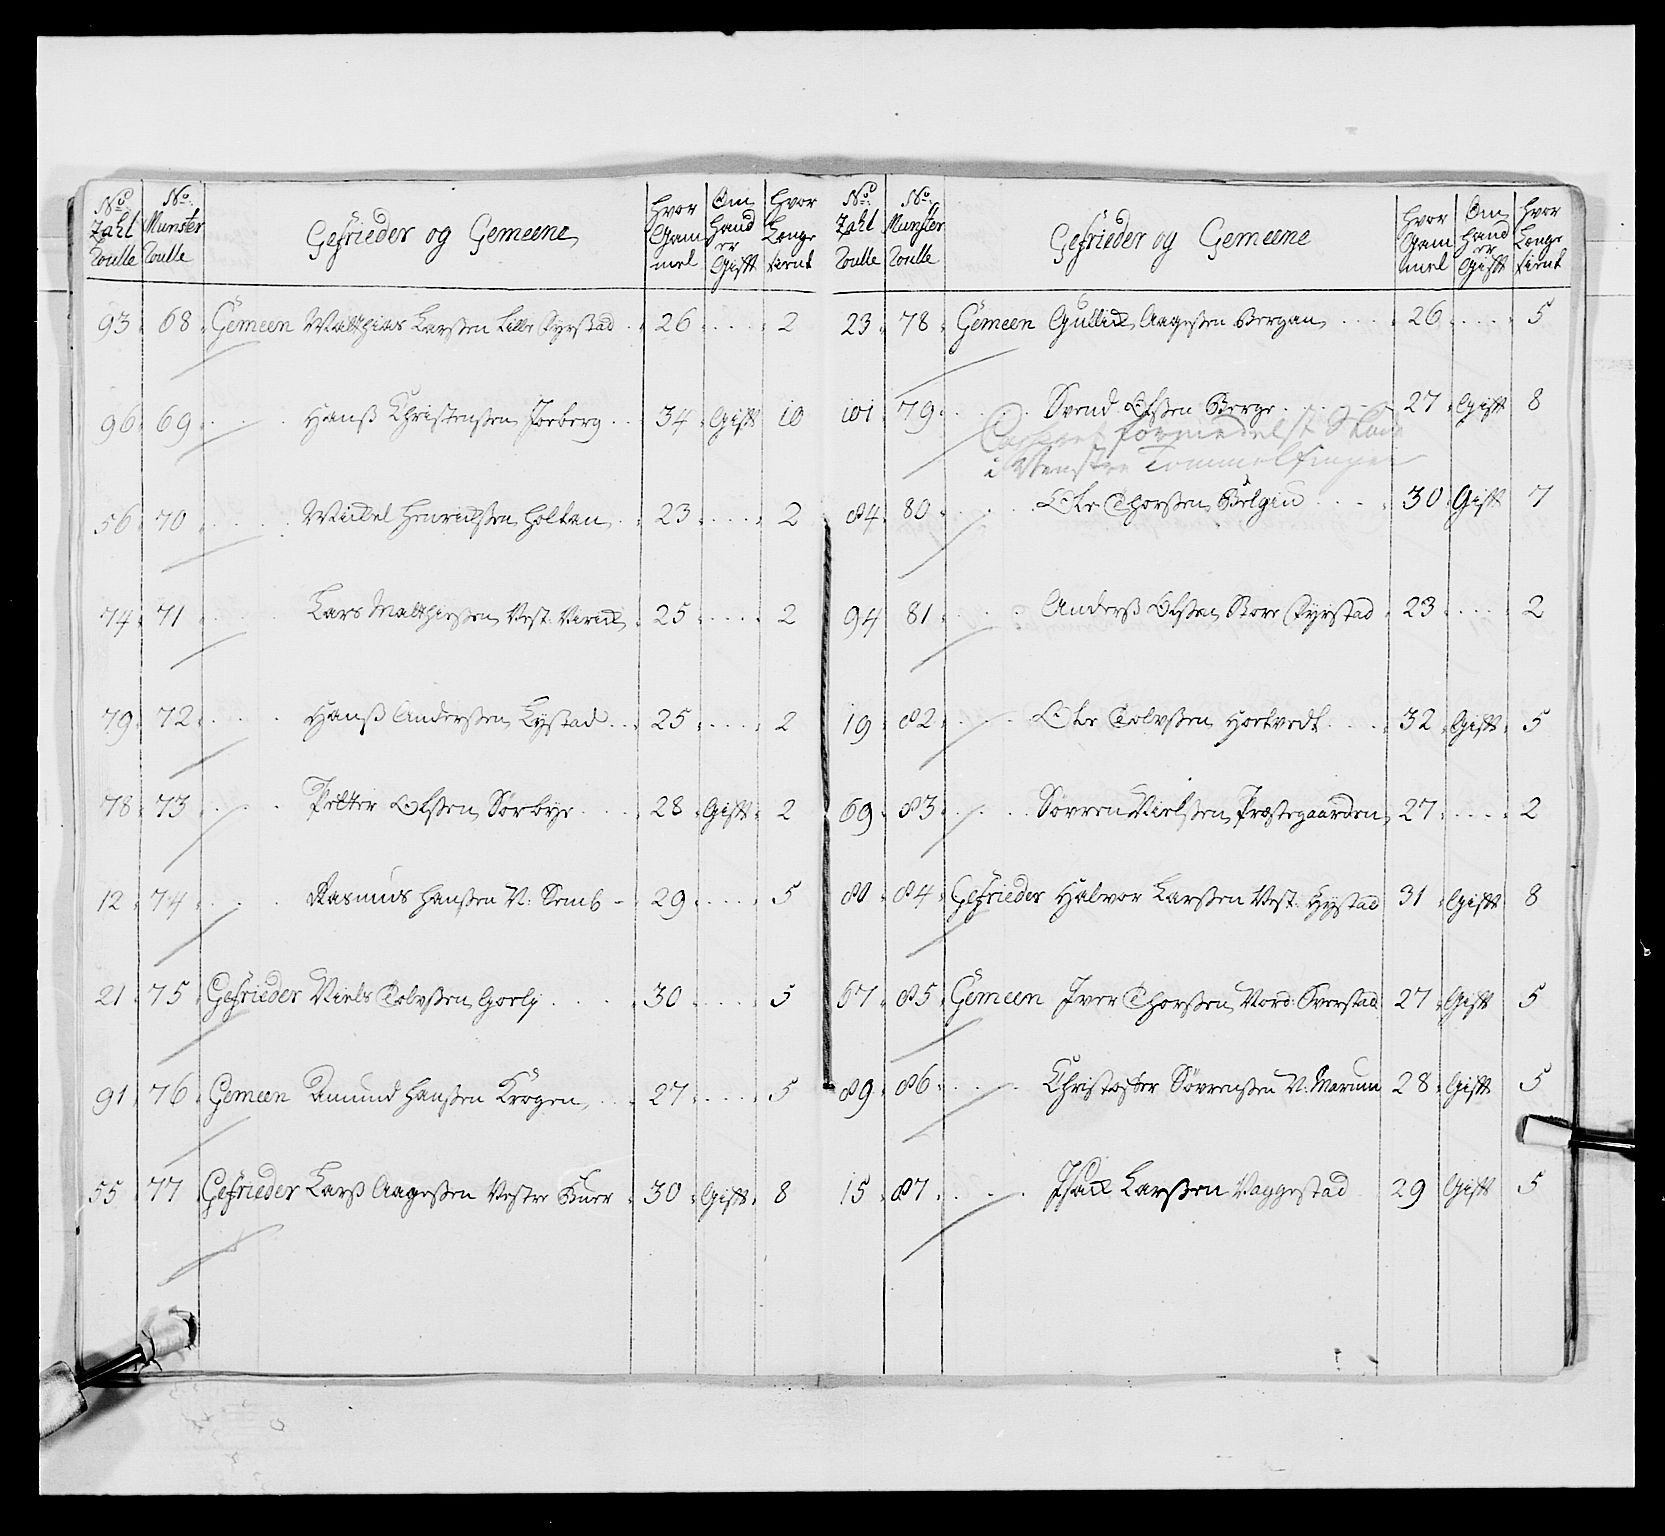 No Zahl Roulle | No Munster Roulle | Gefrieder og Gemeene | Hvor Gam mel | Om hand er Gift | Hvor Længe tient
93 68 Gemeen Matthias Larßen Lille Fyrstad 26 2
96 69 Hanß Christenßen Foeberg 34 Gift 10
56 70 Michel Henrichßen Holtan 23 2
74 71 Lars Matthießen Vest: 25 2
79 72 Hanß Anderßen Lystad 25 2
78 73 Petter Olßen Sørbye 28 Gift 2
12 74 Rasmus Hanßen N: Semb 29 5
21 75 Gefrieder Niels Tolvßen Goelj 30 5
91 76 Gemeen Amund Hanßen Krogen 27 5
55 77 Gefrieder Larß Aageßen Vestre 30 Gift 8
No Zahl Roulle | No Munster Roulle | Gefrieder og Gemeene | Hvor Gam mel | Om hand er Gift | Hvor Længe tient
23 78 Gemeen Gullich Aageßen Bergan 26 5
101 79 Svend Olßen Berge 27 Gift 8
formedelst Skade
i Venstre Tommelfinger
84 80 Ole Thorßen Bølgin 30 Gift 7
94 81 Anderß Olßen Store Fyrstad 23 2
19 82 Ole Tolvßen Hortvedt 32 Gift 5
69 83 Sørren Nielßen Præstegaarden 27 2
80 84 Gefrieder Halvor Larßen Vest: Hystad 31 Gift 8
67 85 Gemeen Iver Thorßen Nord: Sverstad 27 Gift 5
89 86 Christopher Sørrenßen N: Marum 28 Gift 5
15 87 Isach Larßen Vaggestad 29 Gift 5